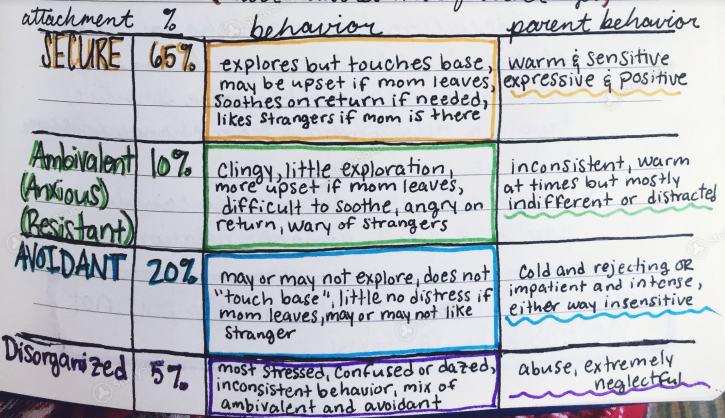 attachment % behavior parent behavior
SECURE 65%
explores but touches base,
may be upset if mom leaves,
soothes on return if needed,
likes strangers if mom is there
warm & sensitive
expressive & positive
Ambivalent 10%
(Anxious)
(Resistant)
clingy, little exploration,
more upset if mom leaves,
difficult to soothe, angry on
return, wary of strangers
inconsistent, warm
at times but mostly
indifferent or distracted
AVOIDANT 20%
may or may not explore, does not
"touch base", little no distress if
mom leaves, may or may not like
stranger
cold and rejecting OR
impatient and intense,
either way insensitive
Disorganized 5%
most stressed, confused or dazed,
inconsistent behavior, mix of
ambivalent and avoidant
abuse, extremely
neglectful